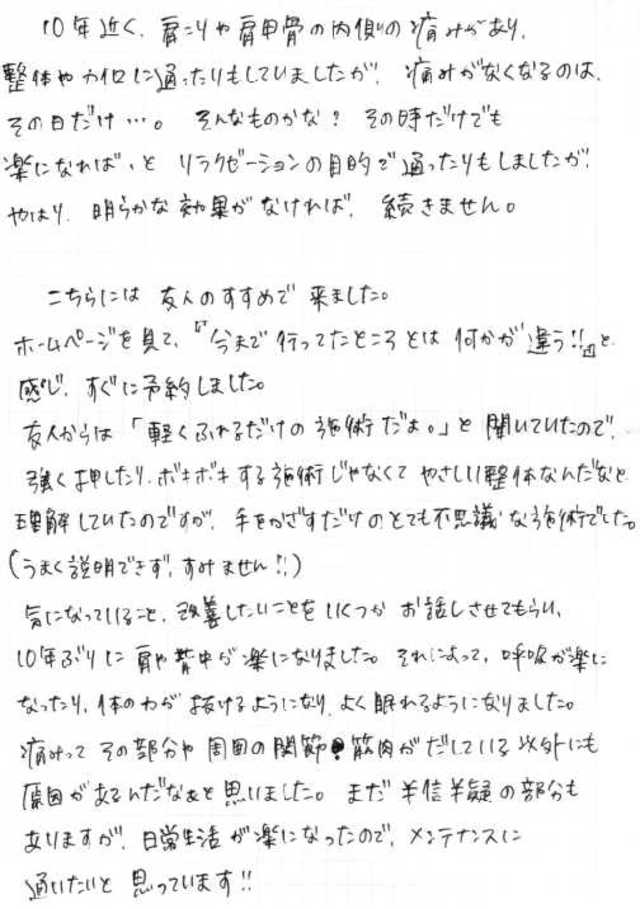 10年近く、肩こりや肩甲骨の内側の痛みがあり、
整体やカイロに通ったりもしていましたが、痛みがなくなるのは、
その日だけ…。そんなものかな?その時だけでも
楽になれば、と リラクゼーションの目的で通ったりもしましたが、
やはり、明らかな効果がなければ、続きません。
こちらには 友人のすすめで 来ました。
ホームページを見て、『今まで行ってたところとは 何かが違う!!』と
感じ、すぐに予約しました。
友人からは「軽くふれるだけの施術だよ。」と聞いていたので、
強く押したり、ボキボキする施術じゃなくて やさしい整体なんだなと
理解していたのですが、手をかざすだけのとても不思議な施術でした。
(うまく説明できず、すみません!!)
気になっていること、改善したいことを いくつか お話しさせてもらい、
10年ぶりに 肩や背中が楽になりました。それによって、呼吸が楽に
なったり、体の力が 抜けるようになり、よく眠れるようになりました。
痛みって その部分や 周囲の関節 筋肉がだしている以外にも
原因があるんだなぁと思いました。まだ 半信半疑の部分も
ありますが、日常生活が楽になったので、メンテナンスに
通いたいと 思っています!!